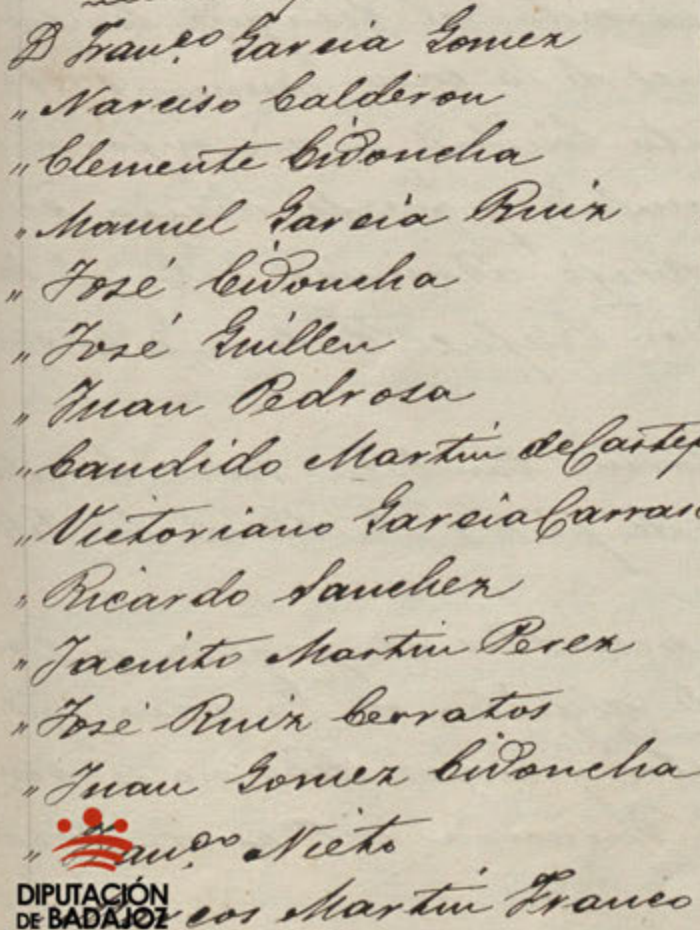 D Franco García Gomez
" Narciso Calderon
" Clemente Cidoncha
" Manuel Garcia Ruiz
" José Cidoncha
" José Guillen
" Juan Pedrosa
" Candido Martin de
" Victoriano Garcia
" Ricardo Sanchez
" Jacinto Martin Perez
" José Ruiz Cerratos
" Juan Gomez Cidoncha
" Franco Nieto
Martin Franco
DIPUTACIÓN
DE BADAJOZ